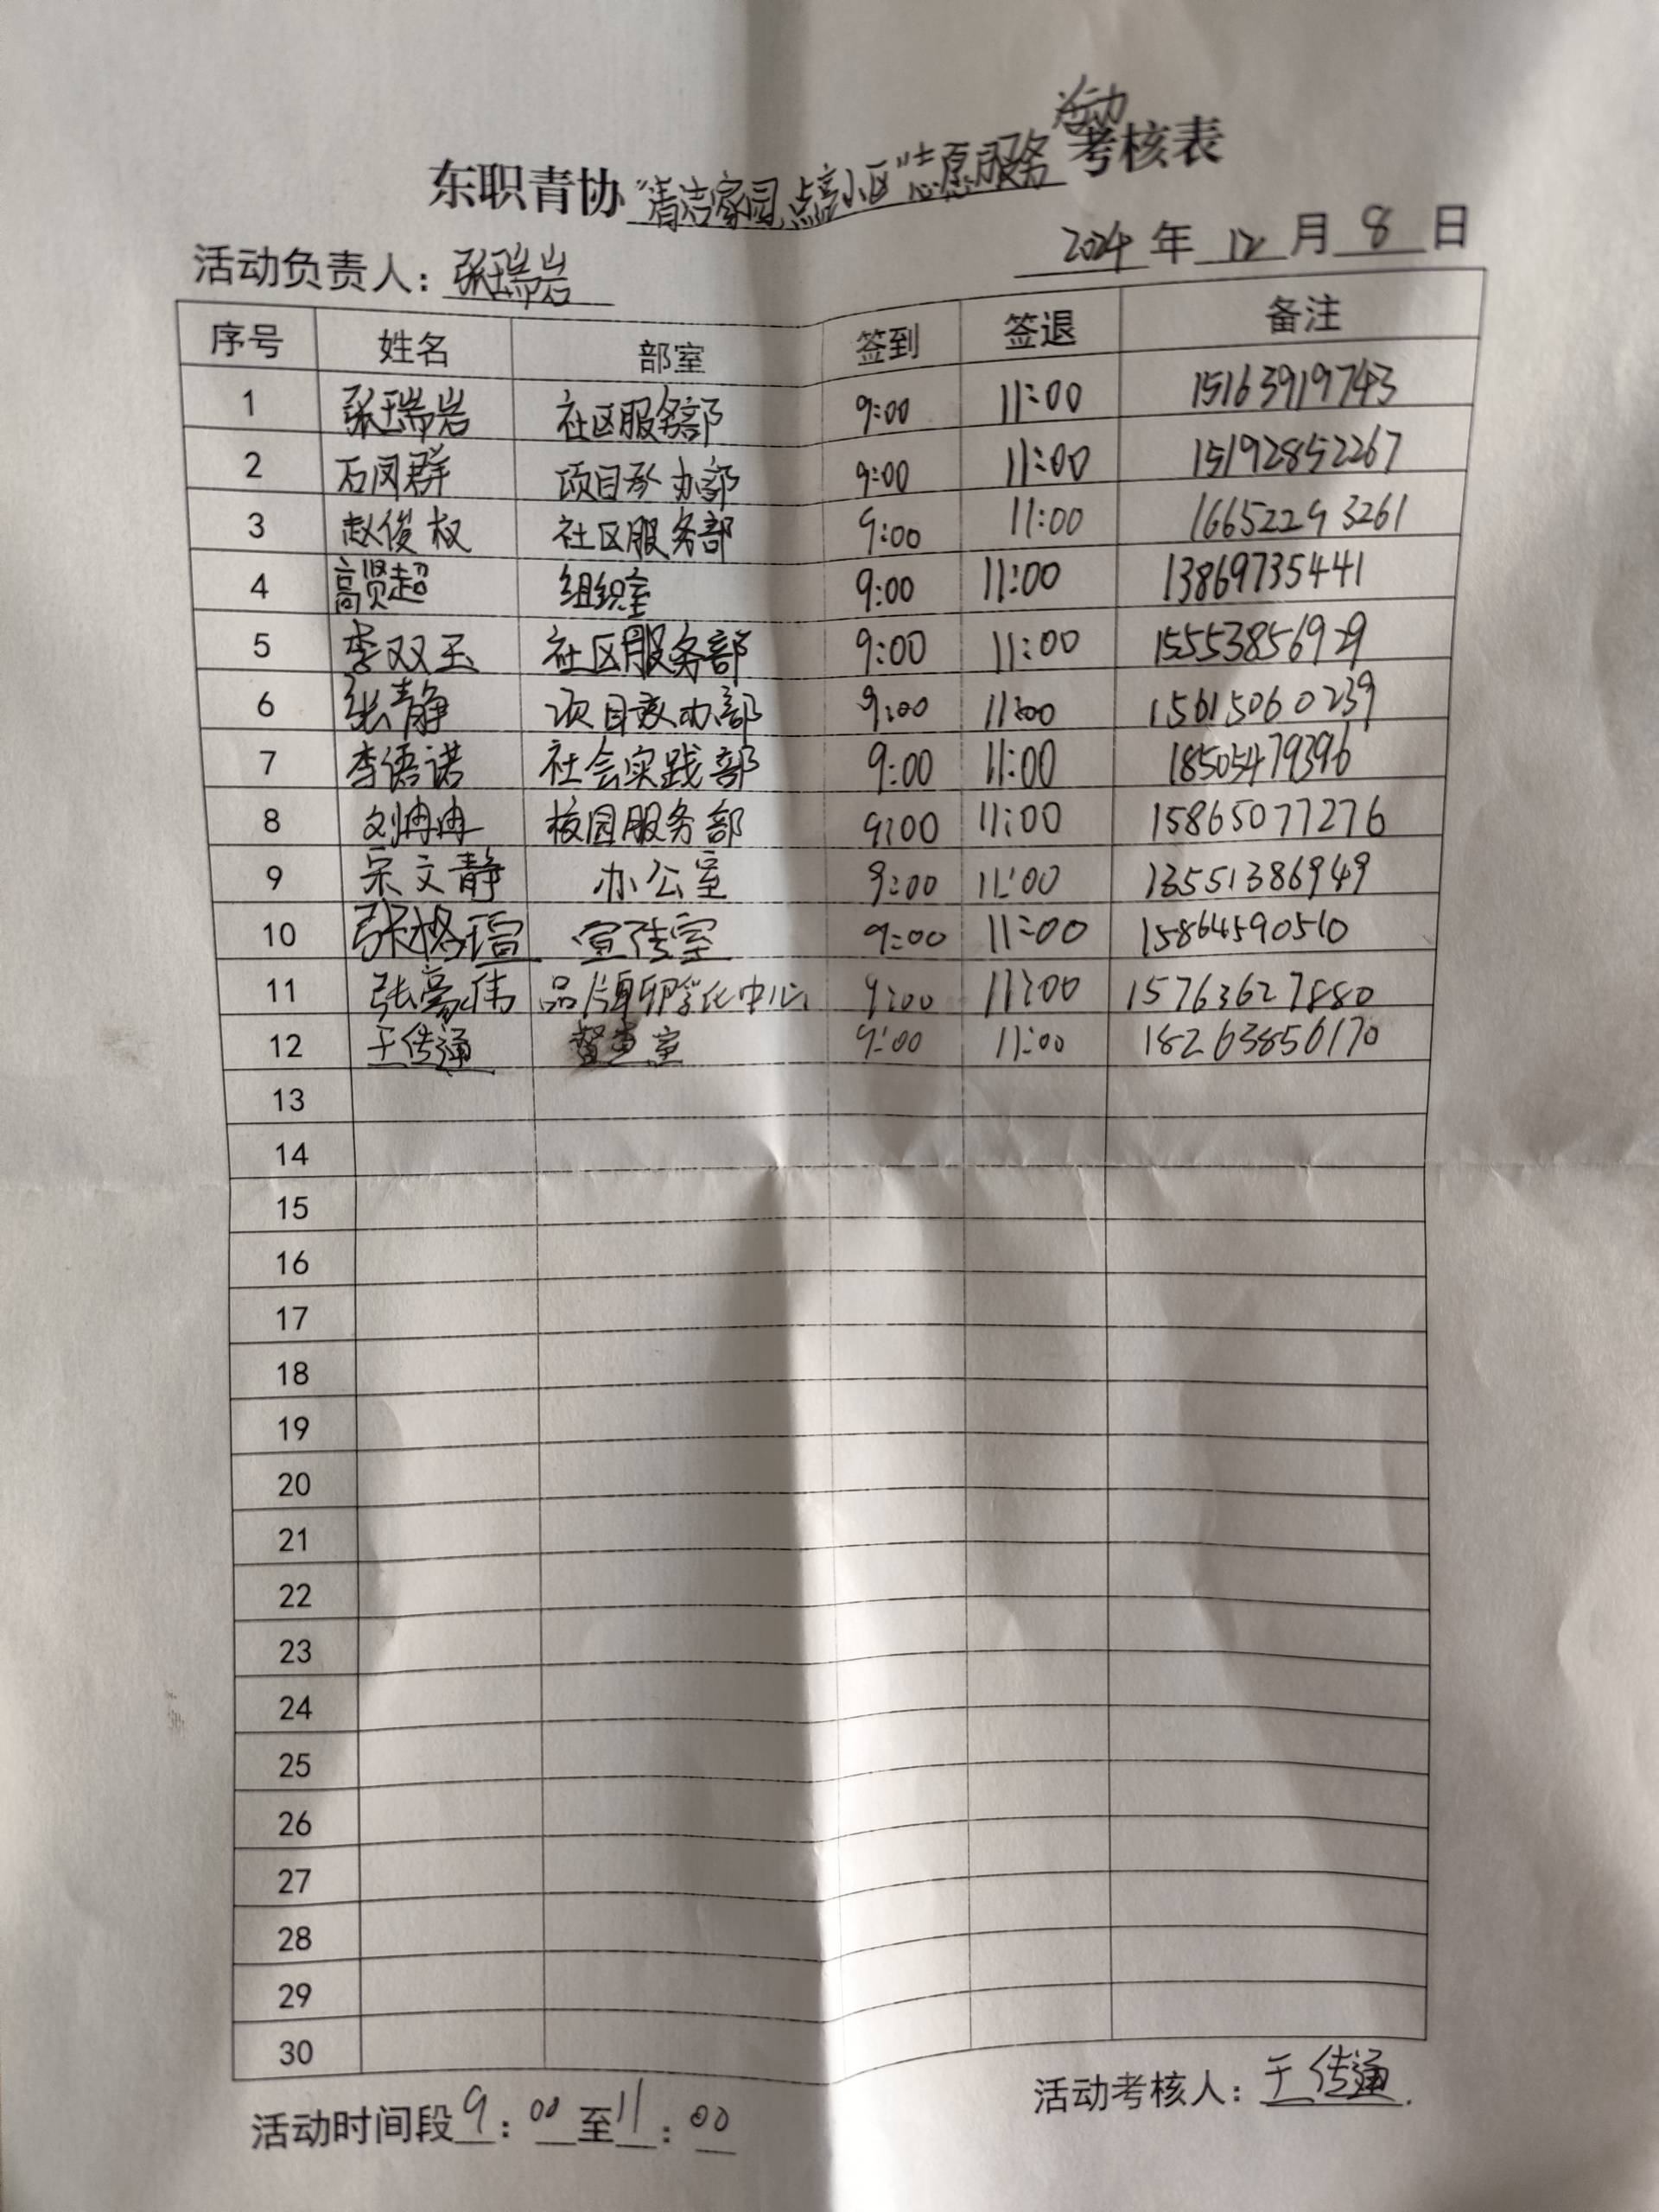 东职青协"清洁家园,点亮小区"志愿服务活动考核表
活动负责人：张瑞岩 2024年12月8日
序号 姓名 部室 签到 签退 备注
1 张瑞岩 社区服务部 9:00 11:00 15163919743
2 石凤群 项目承办部 9:00 11:00 15192852267
3 赵俊权 社区服务部 9:00 11:00 16652293261
4 高贤超 组织室 9:00 11:00 13869735441
5 李双玉 社区服务部 9:00 11:00 15553856929
6 张静 项目承办部 9:00 11:00 15615060239
7 李语诺 社会实践部 9:00 11:00 18505479396
8 刘冉冉 校园服务部 9:00 11:00 15865077276
9 宋文静 办公室 9:00 11:00 13551386949
10 张格瑄 宣传室 9:00 11:00 15864590510
11 张豪伟 品牌孵化中心 9:00 11:00 15763627880
12 王传通 督查室 9:00 11:00 18263856170
13
14
15
16
17
18
19
20
21
22
23
24
25
26
27
28
29
30
活动时间段9：00至11：00 活动考核人：王传通